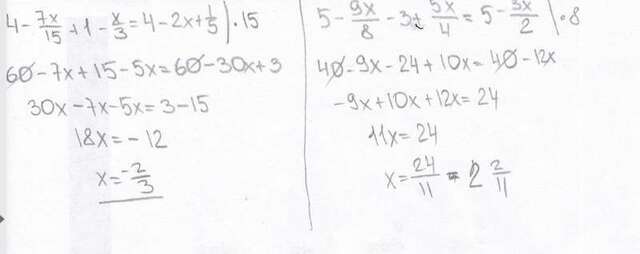 4 - 7x/15 + 1 - x/3 = 4 - 2x + 1/5 ) · 15
60 - 7x + 15 - 5x = 60 - 30x + 3
30x - 7x - 5x = 3 - 15
18x = - 12
x = -2/3
5 - 9x/8 - 3 + 5x/4 = 5 - 3x/2 | · 8
40 - 9x - 24 + 10x = 40 - 12x
-9x + 10x + 12x = 24
11x = 24
x = 24/11 = 2 2/11